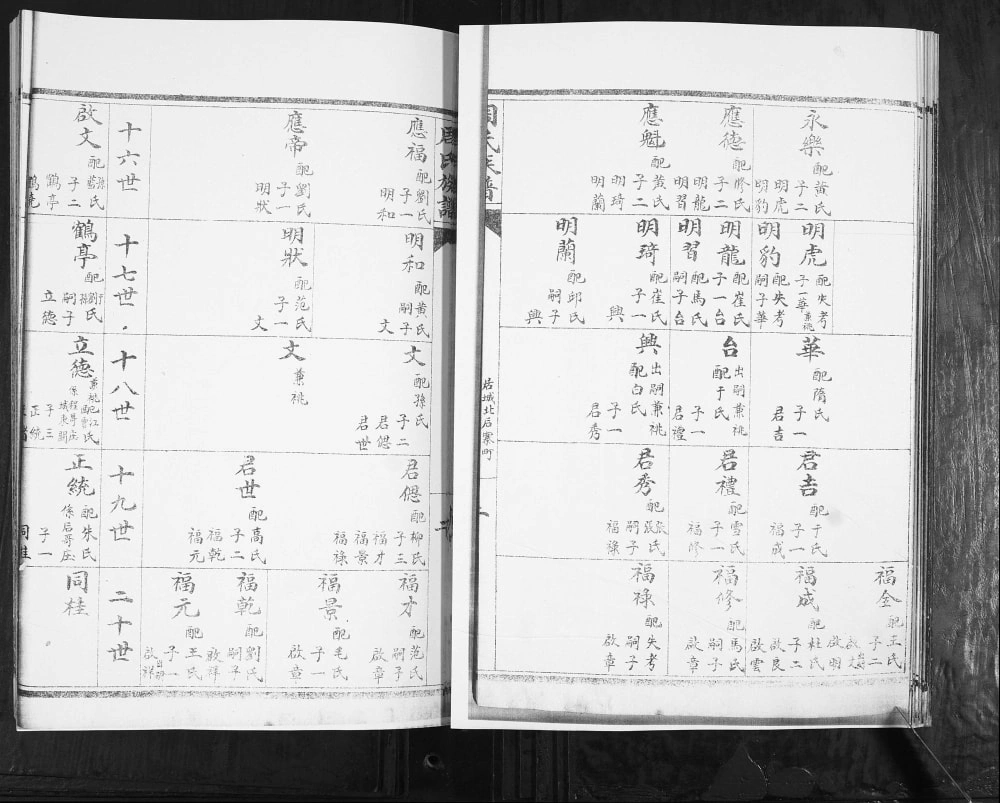 永樂 配黃氏 子二 明虎 明豹
應德 配修氏 子二 明龍 明習
應魁 配黃氏 子二 明琦 明蘭
明虎 配失考 子一華兼祧
明豹 配失考 嗣子華
明龍 配崔氏 子一台
明習 配馬氏 嗣子台
明琦 配崔氏 子一 興
明蘭 配邱氏 嗣子 興
華 配隋氏 子一 君吉
台 出嗣兼祧 配于氏 子一 君禮
興 出嗣兼祧 配白氏 子一 君秀
君吉 配于氏 子一 福成
君禮 配雪氏 子一 福修
君秀 配張氏 嗣子 福祿
福全 配王氏 子二 啟明
福成 配杜氏 子二 啟良 啟雲
福修 配馬氏 嗣子 啟章
福祿 配失考 嗣子 啟章
周氏族譜
居城北后寨町
周氏族譜
應福 配劉氏 子一 明和
應帝 配劉氏 子一 明狀
明和 配黃氏 嗣子 文
明狀 配范氏 子一 文
文 配孫氏 子二 君偲 君世
文 兼祧
君偲 配柳氏 子三 福才 福景 福祿
君世 配高氏 子二 福乾 福元
福才 配范氏 嗣子 啟章
福景 配毛氏 子一 啟章
福乾 配劉氏 嗣子 啟祥
福元 配王氏 子一 啟祥
十六世
十七世
十八世
十九世
二十世
啟文 配 子二 鶴亭
鶴亭 配 劉氏 嗣子 立德
立德 兼祧 配江氏 子三 正統
正統 配朱氏 係后哥庄 子一 同桂
同桂